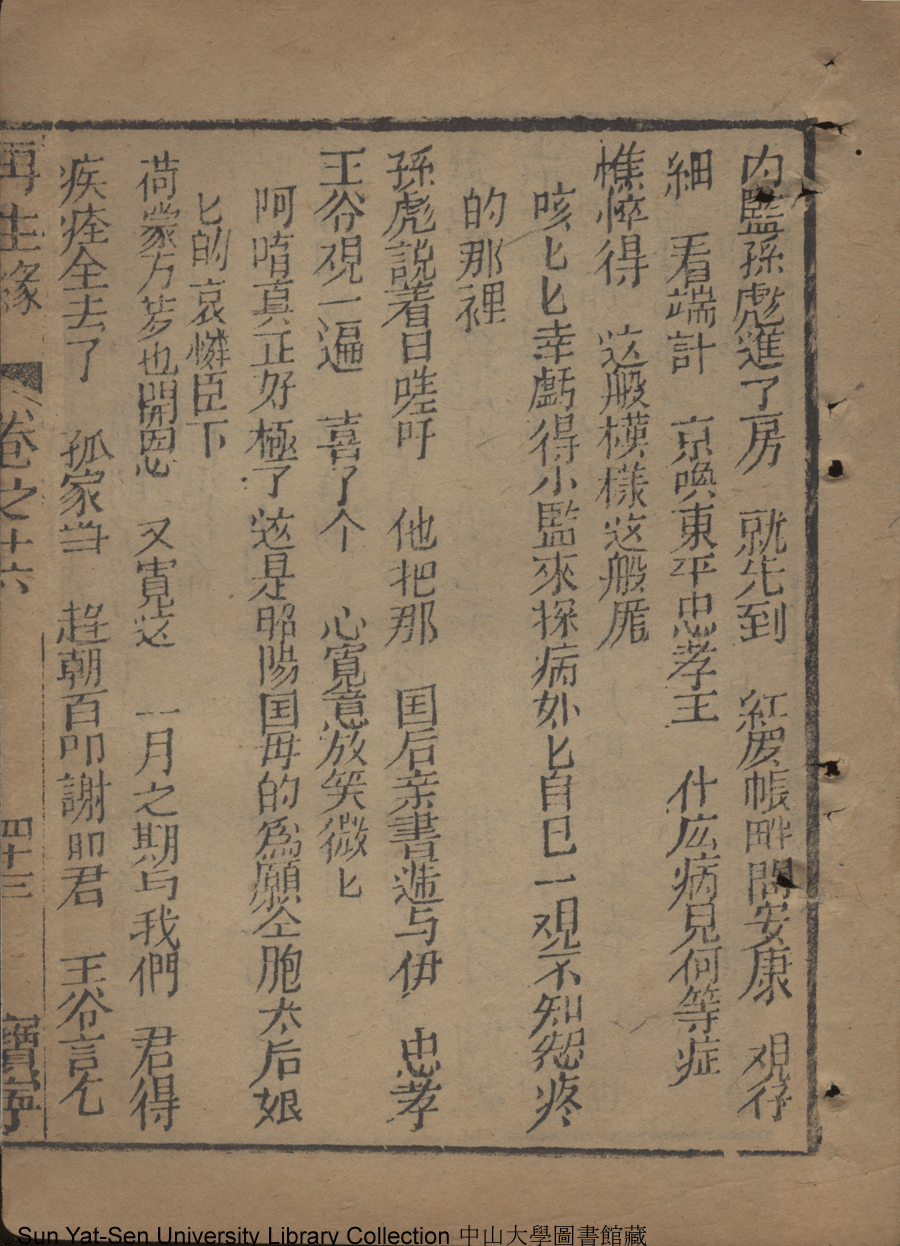 内監孫彪進了房　就先到　紅罗帳畔問安康　观仔
細　看端詳　京喚東平忠孝王　什広病見何等症
憔悴得　这般模樣这般尫
咳匕匕幸虧得小監來探病妳匕自已一观不知怨疼
的那裡
孫彪説着曰哇吁　他把那　国后亲書遞与伊　忠孝
王爷观一遍　喜了个　心寛意放笑微匕
阿唷真正好極了这是昭陽国母的為願仝胞太后娘
匕的哀憐臣下
荷蒙万岁也開恩　又寛这　一月之期与我們　君得
疾痊全去了　孤家当　趍朝百叩謝昭君　王爷言乞
再生緣　卷之十六　四十三　寶寧
Sun Yat-Sen University Library Collection 中山大學圖書館藏